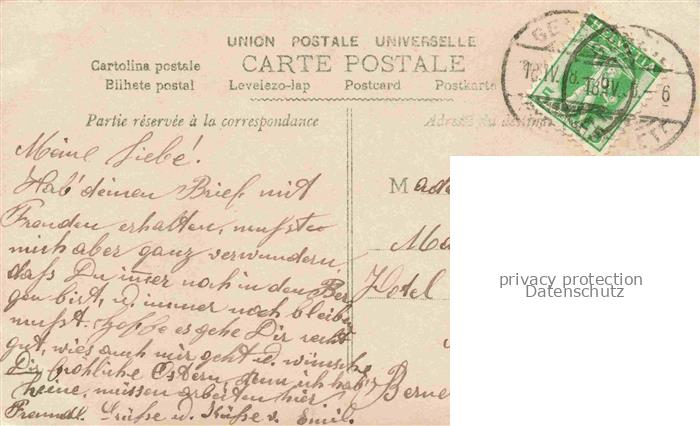 UNION POSTALE UNIVERSELLE
Cartolina postale CARTE POSTALE
Bilhete postal Levelezo-lap Postcard Postkarte
HELVETIA
Partie réservée à la correspondance Adresse du
Meine Liebe!
Hab' deinen Brief mit
Freuden erhalten, mußte
mich aber ganz verwundern,
daß Du immer noch in den Ber
gen bist, u. immer noch bleibe
mußt. Hoffe es gehe Dir recht
gut, wies auch mir geht u. wünsche
Dir fröhliche Ostern, denn ich hab'
keine, müssen arbeiten hier
Freundl. Grüße u. Küße v. Emil.
Hotel
privacy protection
Datenschutz